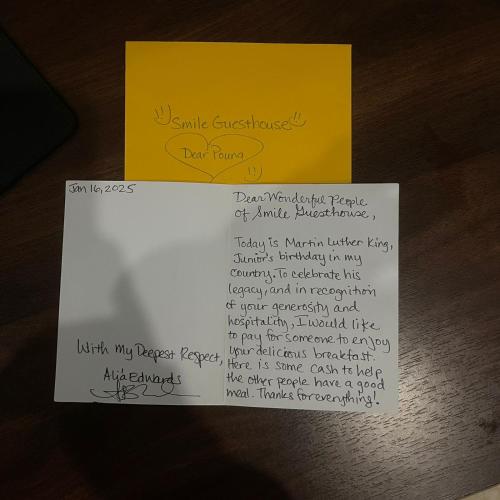 Smile Guesthouse
Dear Poung
Jan 16, 2025
Dear Wonderful People
of Smile Guesthouse,
Today is Martin Luther King,
Junior's birthday in my
country. To celebrate his
legacy, and in recognition
of your generosity and
hospitality, I would like
to pay for someone to enjoy
your delicious breakfast.
Here is some cash to help
the other people have a good
meal. Thanks for everything!
With My Deepest Respect,
Alja Edwards